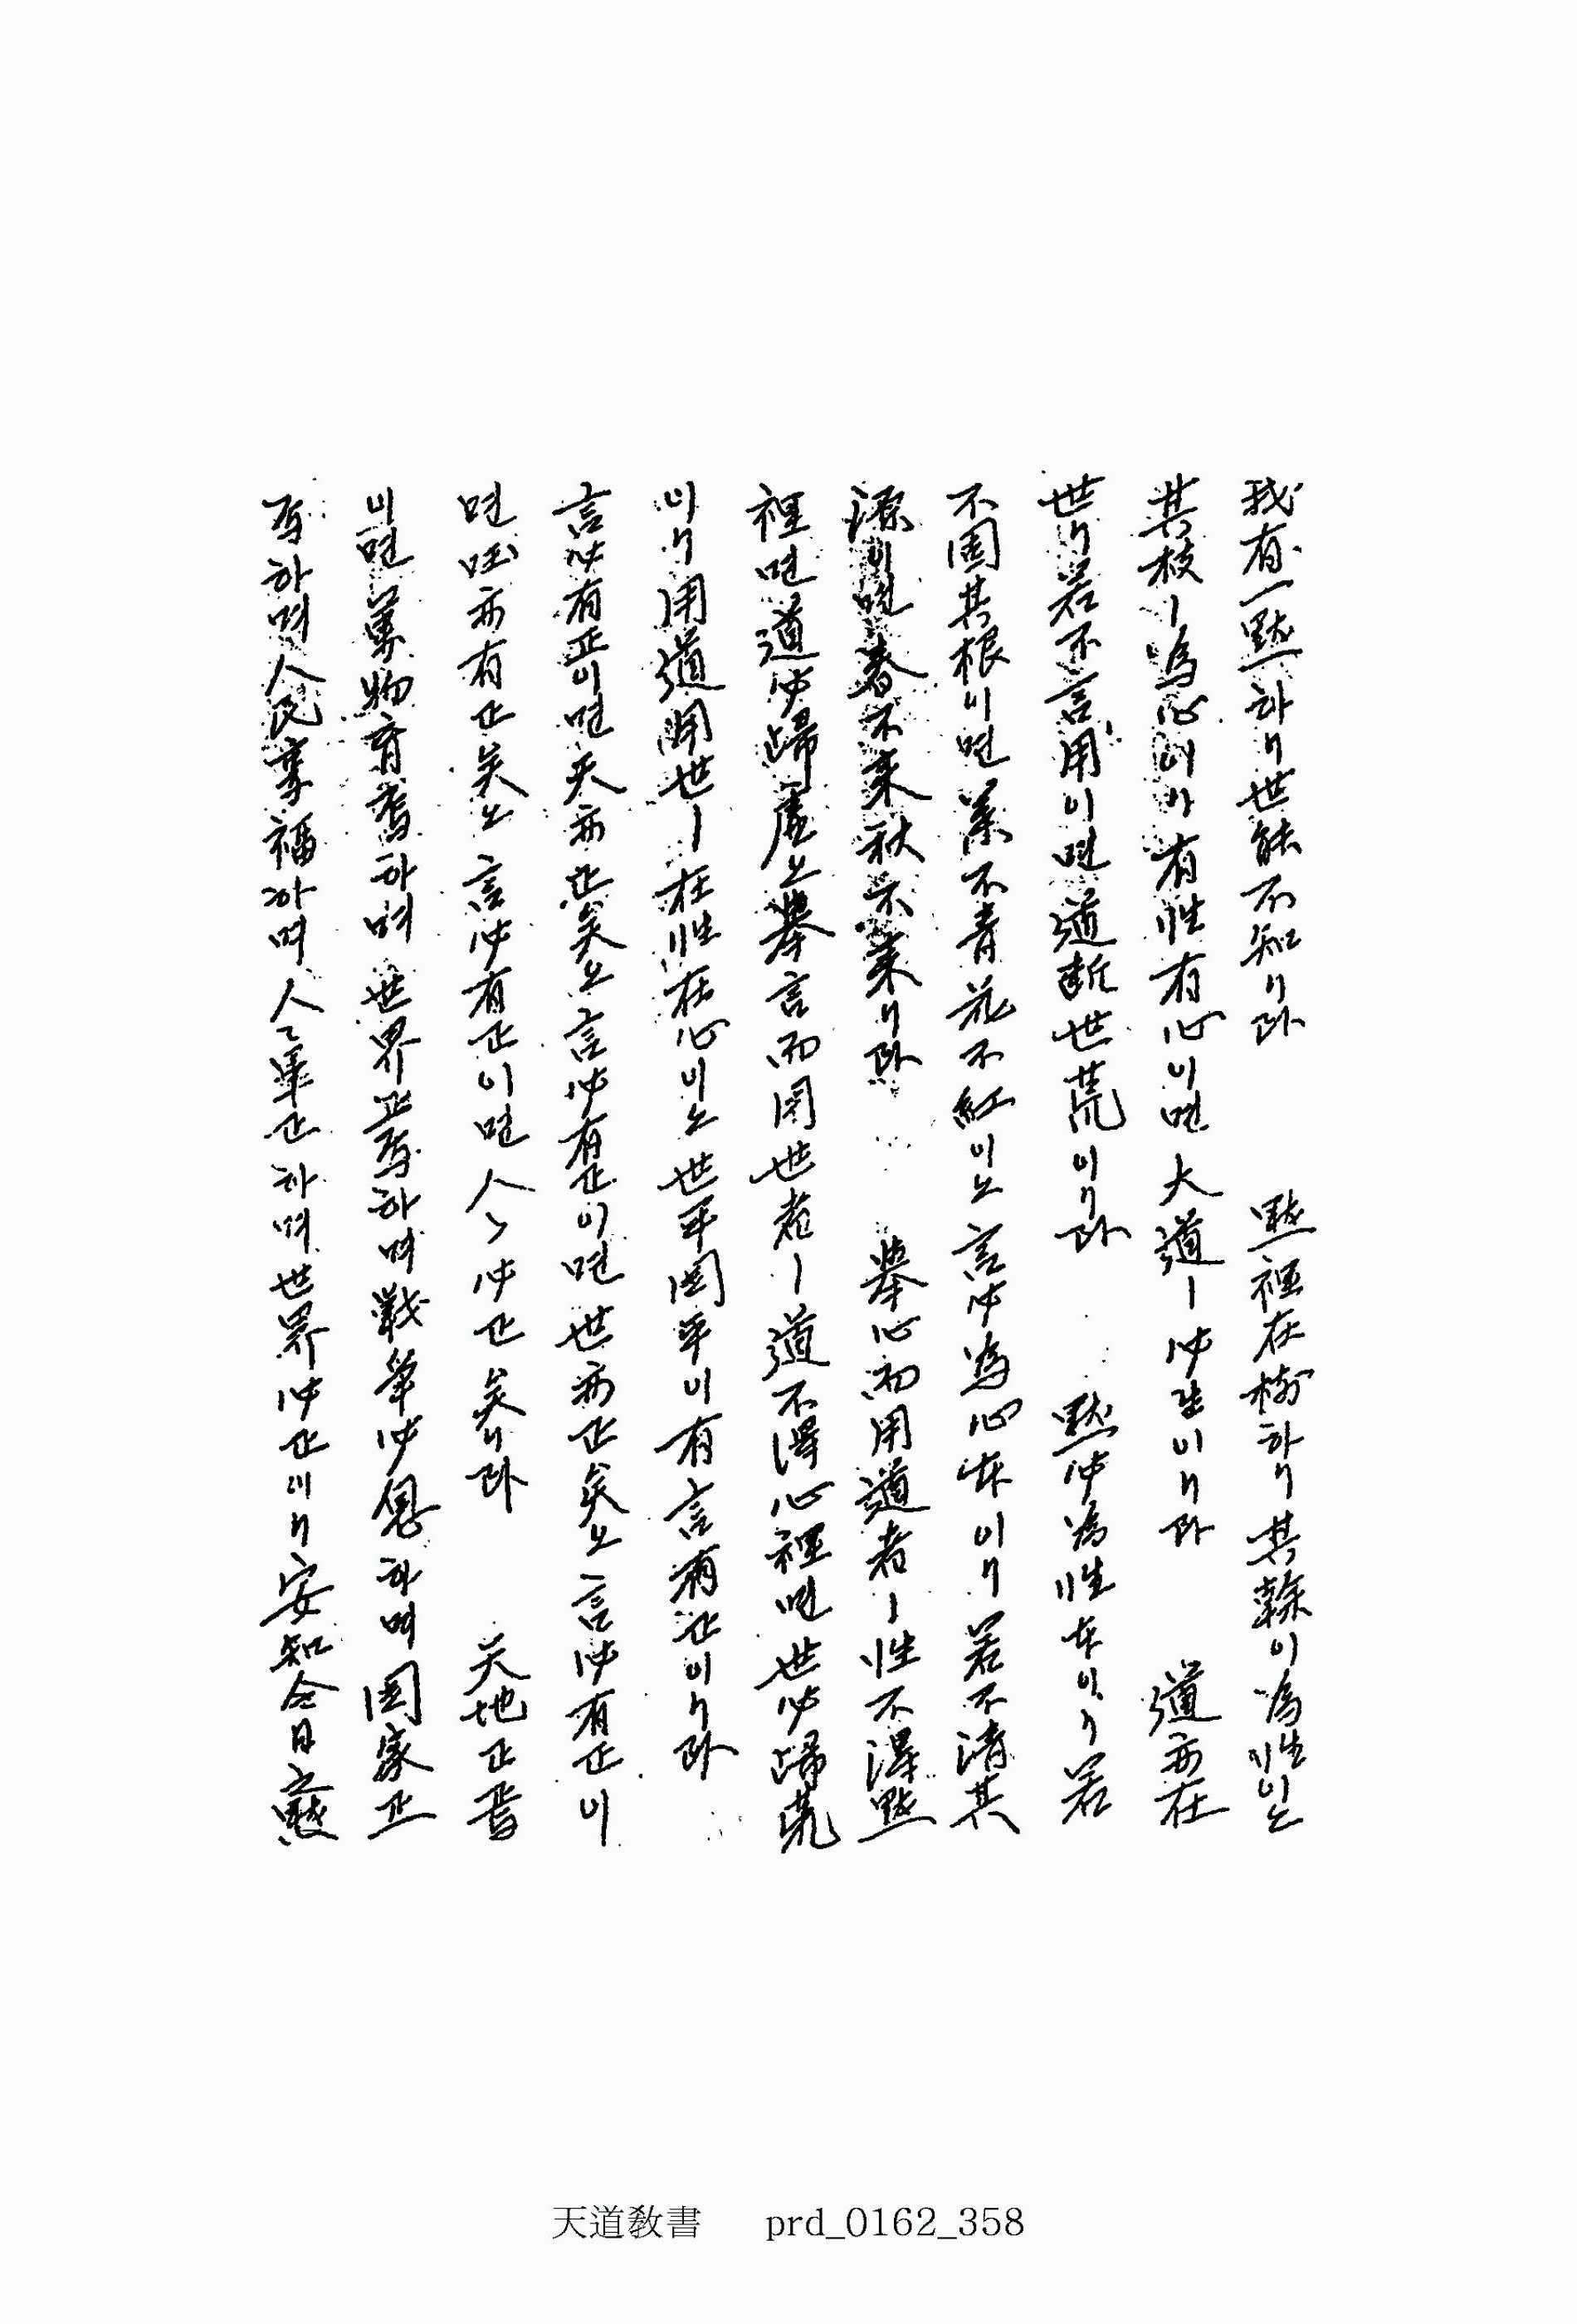 我有一點하니世能不知니라 點裡在樹하니其幹이爲性이오
其枝ㅣ爲心이라有性有心이면大道ㅣ必生이니라 道亦在
世니若不言用이면道斷世荒이니라 默必爲性本이니若
不固其根이면葉不青花不紅이오言必爲心本이니若不清其
源이면春不來秋不來니라 擧心而用道者ㅣ性不得默
裡면道必歸虛오擧言而用世者ㅣ道不得心裡면世必歸荒
이니用道用世ㅣ在性在心이오世平國平이有言有正이니라
言必有正이면天亦正矣오言必有正이면世亦正矣오言必有正이
면國亦有正矣오言必有正이면人人必正矣니라 天地正焉
이면萬物育焉하며世界正焉하며戰爭必息하며國家正
焉하며人民享福하며人々車正하며世界必正이니安知今日之默